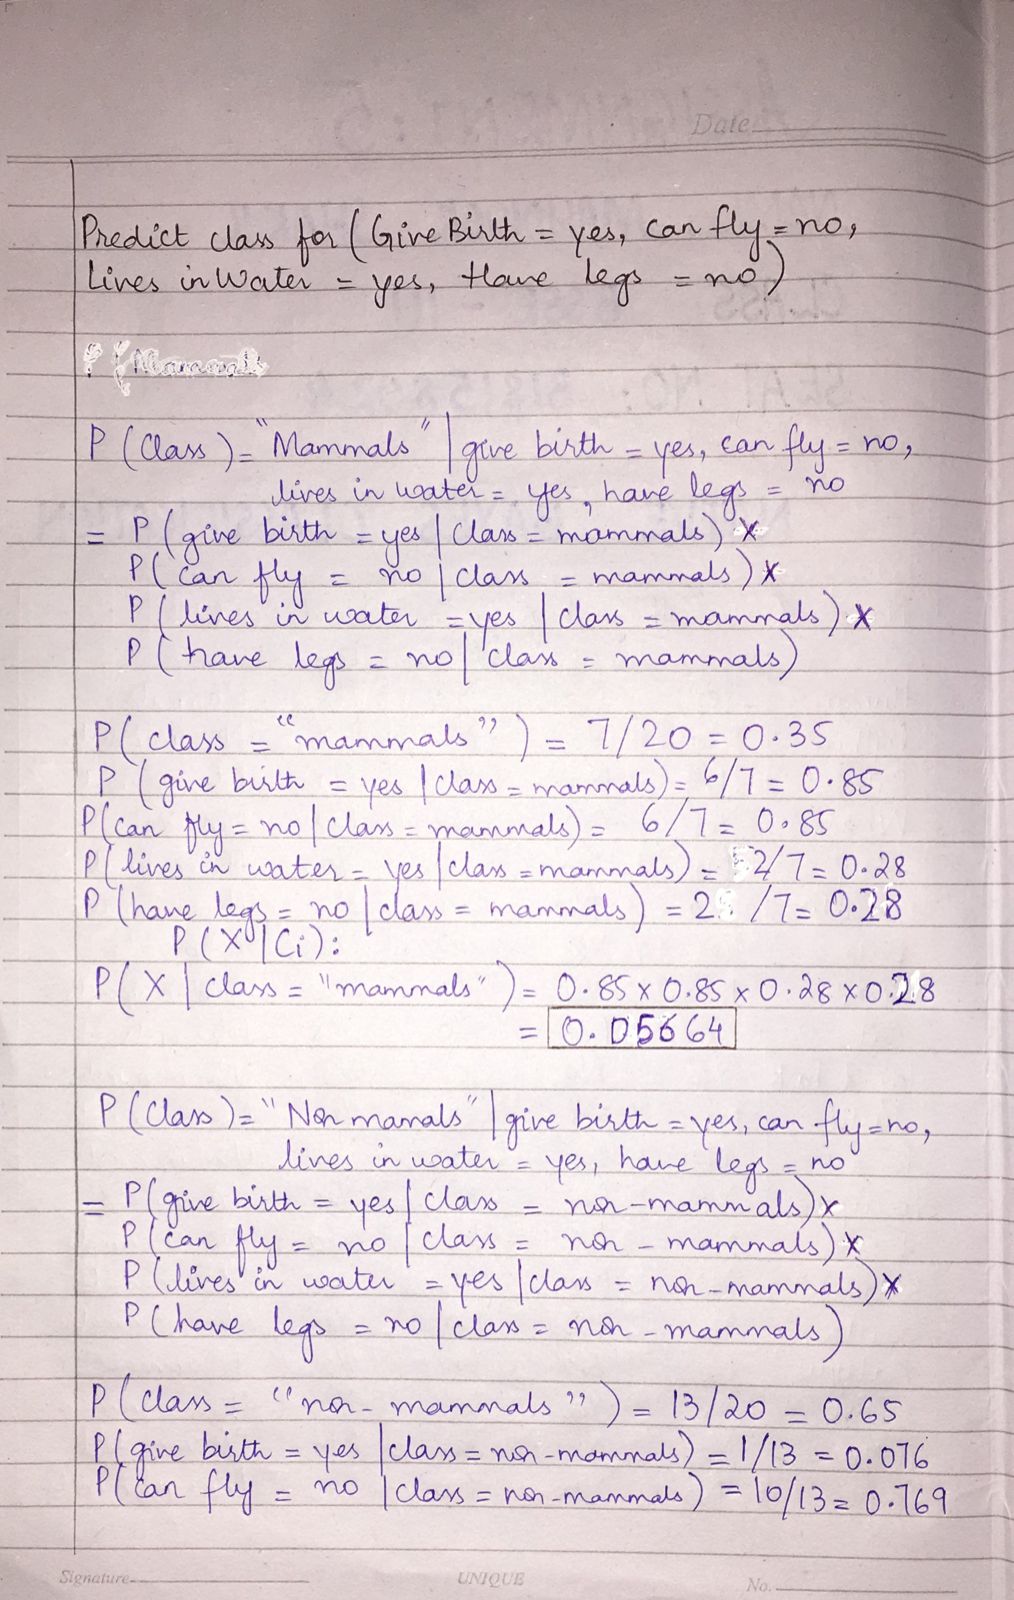 Date
Predict class for (Give Birth = yes, can fly = no,
Lives in Water = yes, Have legs = no)
P (Mammals
P (Class) = "Mammals" | give birth = yes, can fly = no,
lives in water = yes, have legs = no
= P (give birth = yes | Class = mammals) x
P (can fly = no | class = mammals) x
P (lives in water = yes | class = mammals) x
P (have legs = no | class = mammals)
P (class = "mammals") = 7/20 = 0.35
P (give birth = yes | class = mammals) = 6/7 = 0.85
P (can fly = no | class = mammals) = 6/7 = 0.85
P (lives in water = yes | class = mammals) = 2/7 = 0.28
P (have legs = no | class = mammals) = 2/7 = 0.28
P (X | Ci):
P (X | class = "mammals") = 0.85 x 0.85 x 0.28 x 0.28
= 0.05664
P (Class) = "Non mamals" | give birth = yes, can fly = no,
lives in water = yes, have legs = no
= P (give birth = yes | class = non-mammals) x
P (can fly = no | class = non-mammals) x
P (lives in water = yes | class = non-mammals) x
P (have legs = no | class = non-mammals)
P (class = "non-mammals") = 13/20 = 0.65
P (give birth = yes | class = non-mammals) = 1/13 = 0.076
P (can fly = no | class = non-mammals) = 10/13 = 0.769
Signature
UNIQUE
No.